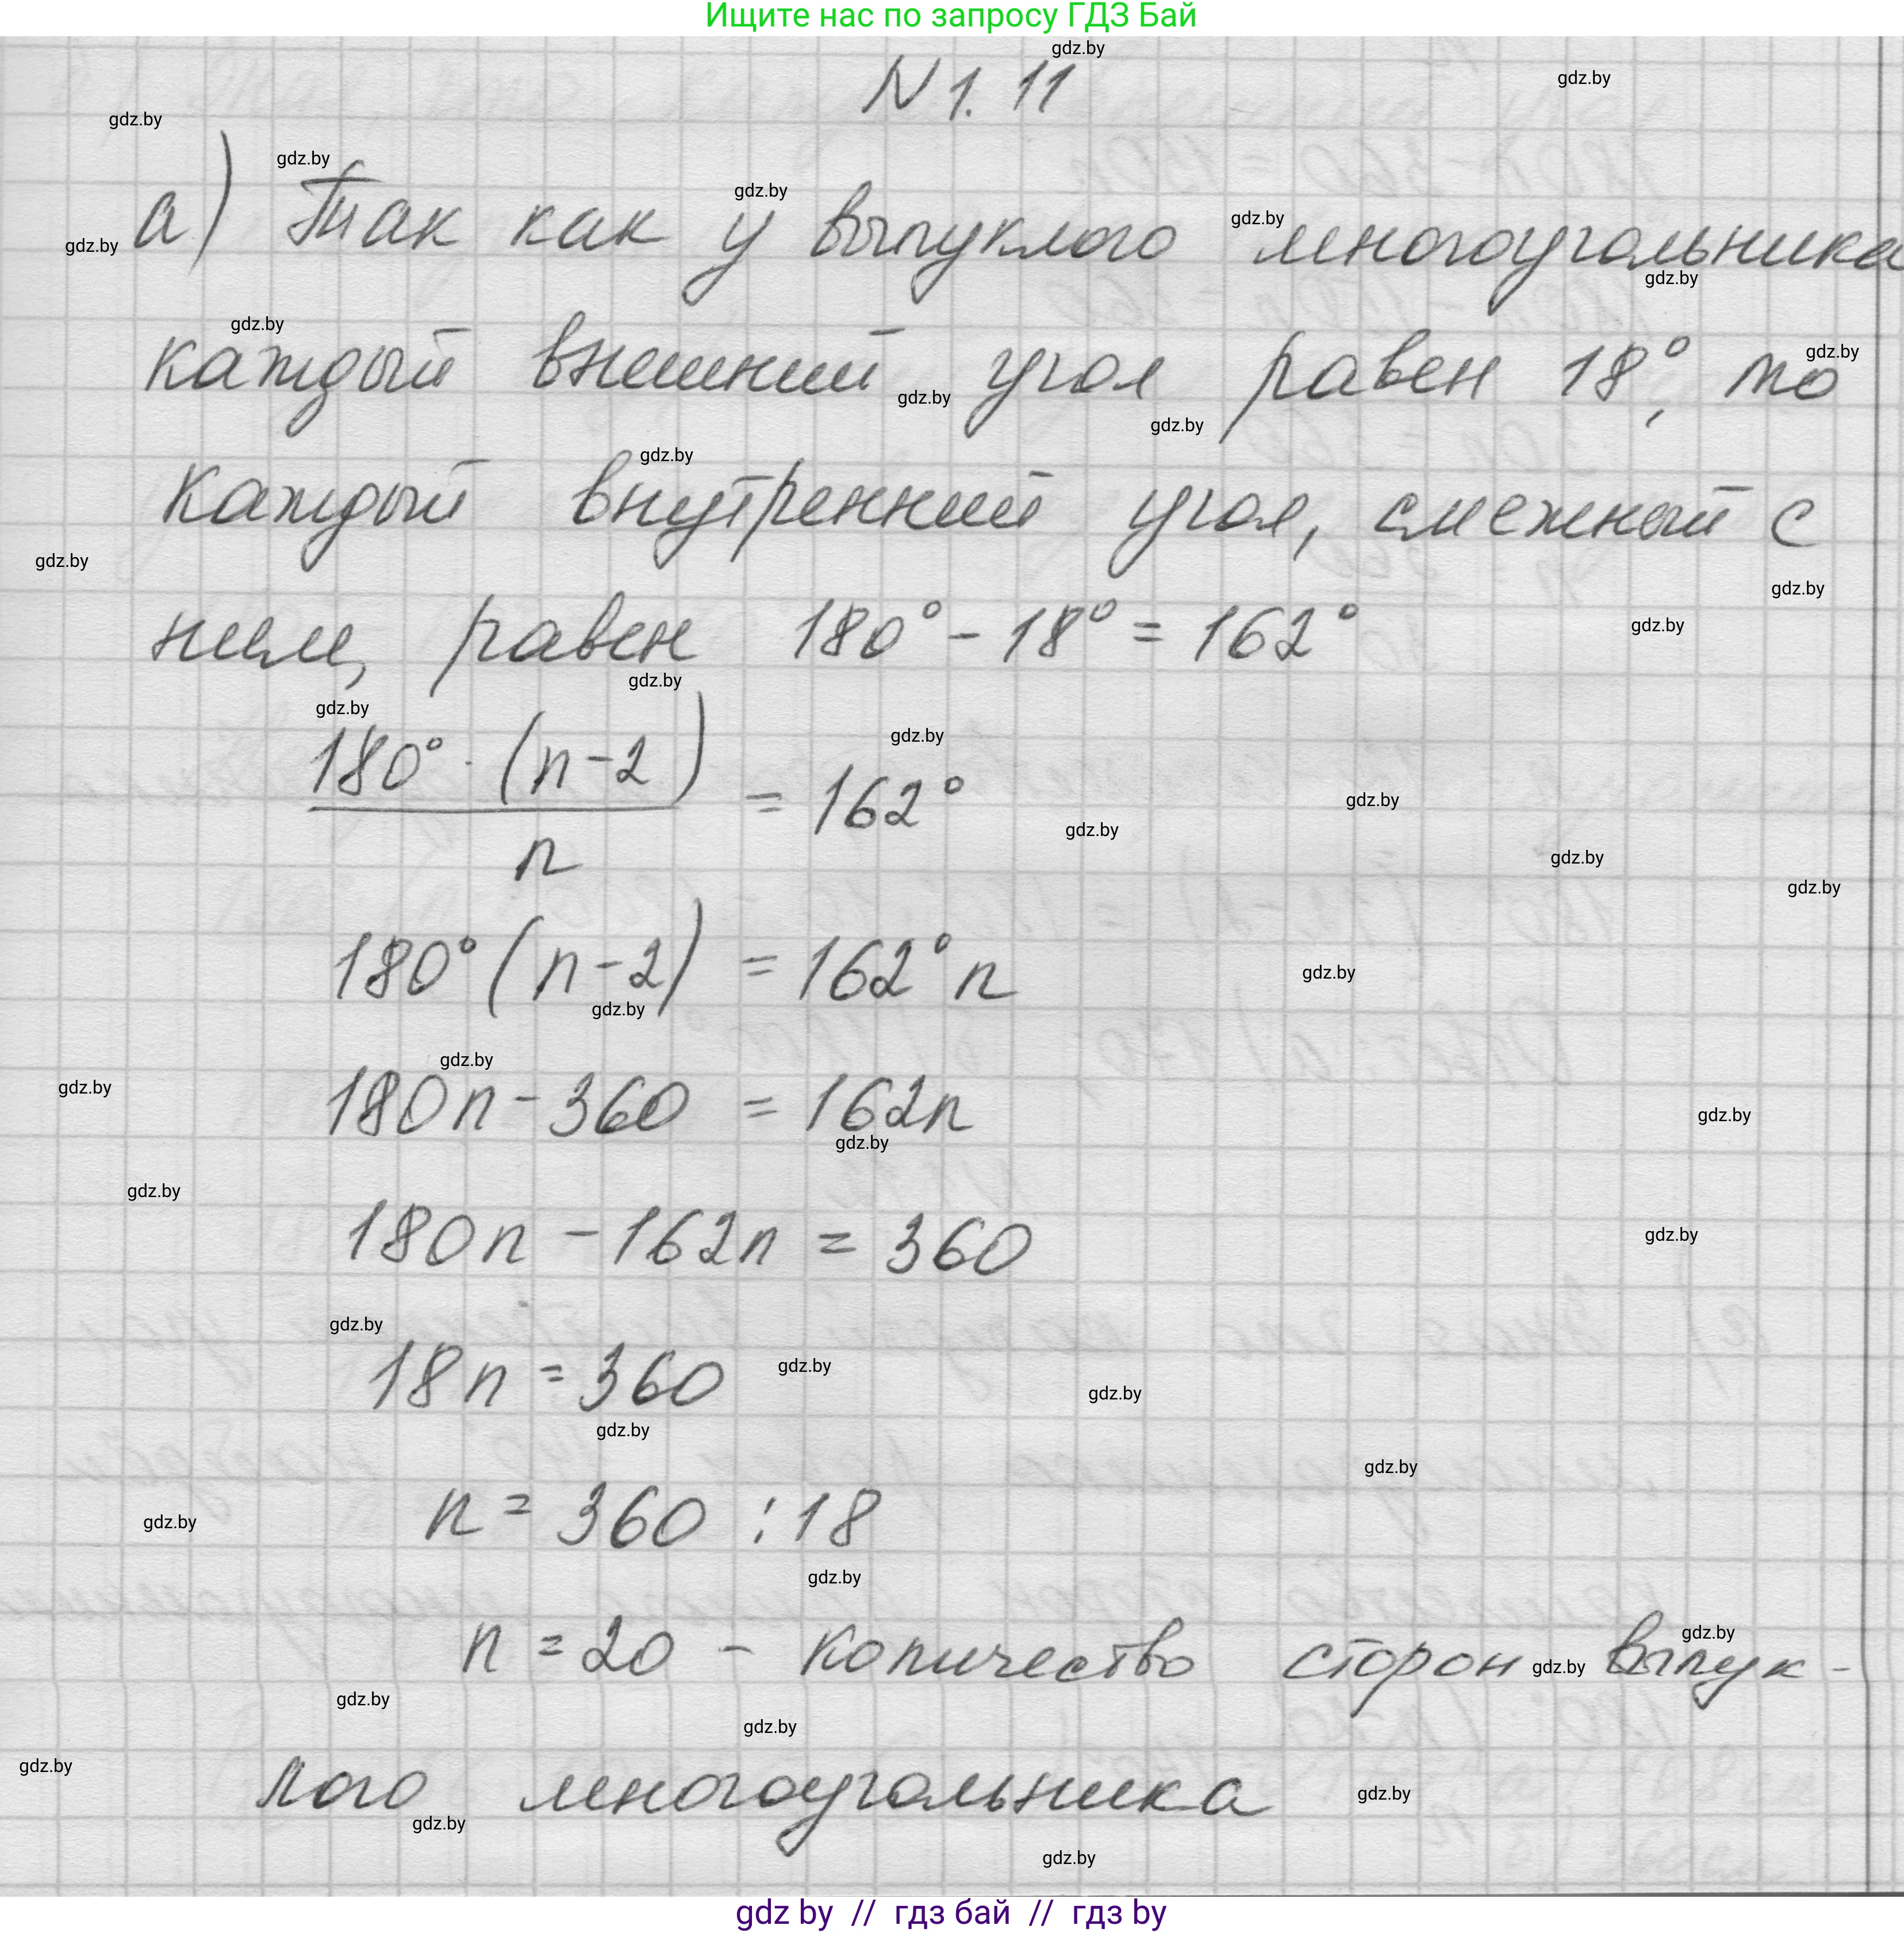 Ищите нас по запросу ГДЗ Бай
N 1.11
а) Так как у выпуклого многоугольника
каждый внешний угол равен 18°, то
каждый внутренний угол, смежный с
ним, равен 180° - 18° = 162°
180° · (n-2)
/ n = 162°
180° (n-2) = 162° n
180n - 360 = 162n
180n - 162n = 360
18n = 360
n = 360 : 18
n = 20 - количество сторон выпук-
лого многоугольника
gdz.by
gdz by // гдз бай // гдз by